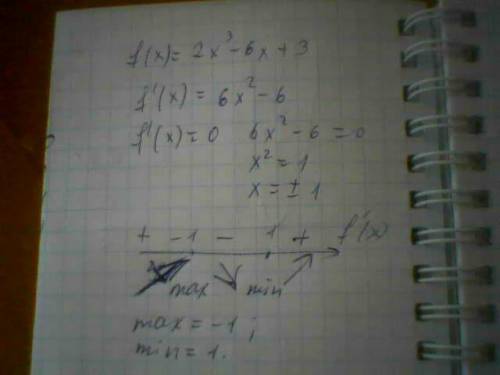 f(x) = 2x³ - 6x + 3
f'(x) = 6x² - 6
f'(x) = 0 6x² - 6 = 0
x² = 1
x = ± 1
+ -1 - 1 + f'(x)
max min
max = -1;
min = 1.